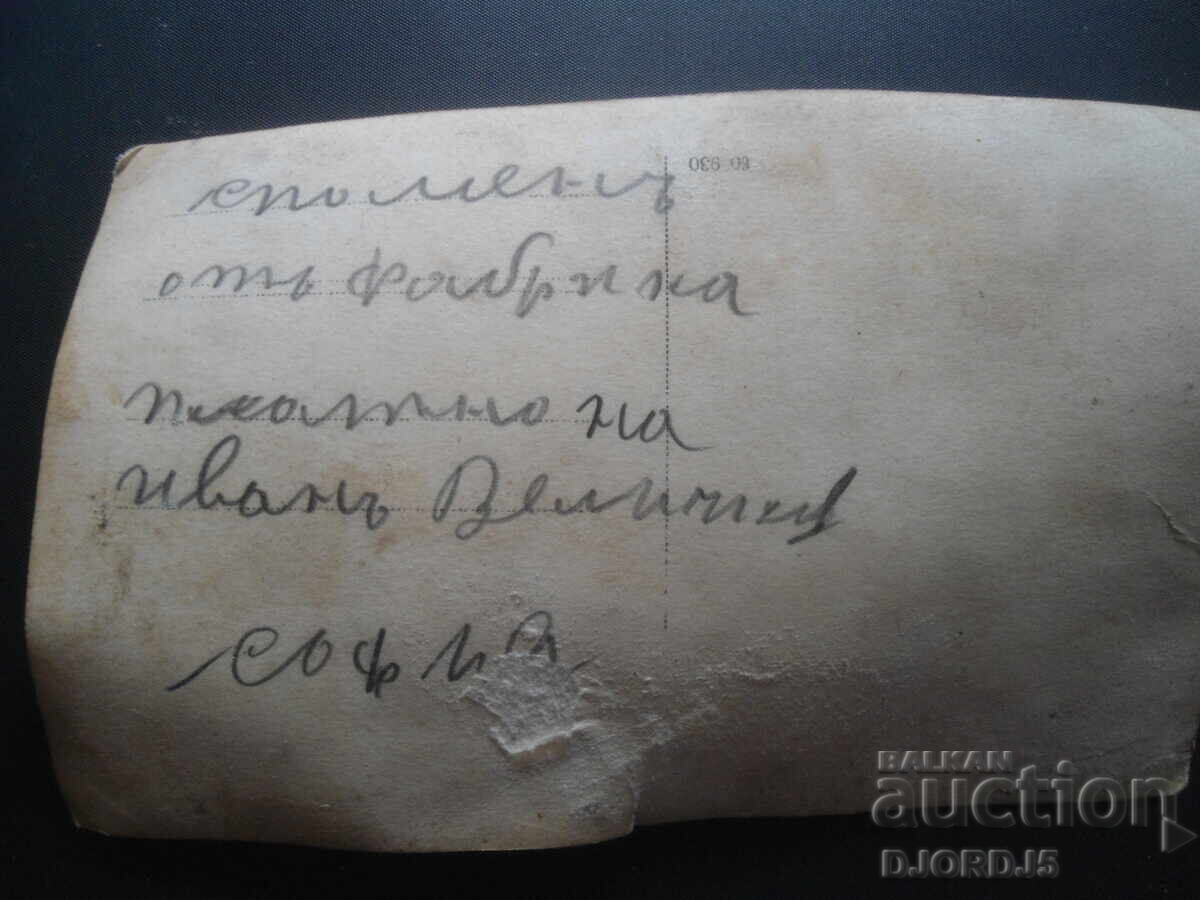 споменъ
отъ фабрика
платно на
иванъ Величков
софия
60 930
BALKAN
auction
DJORDJ5